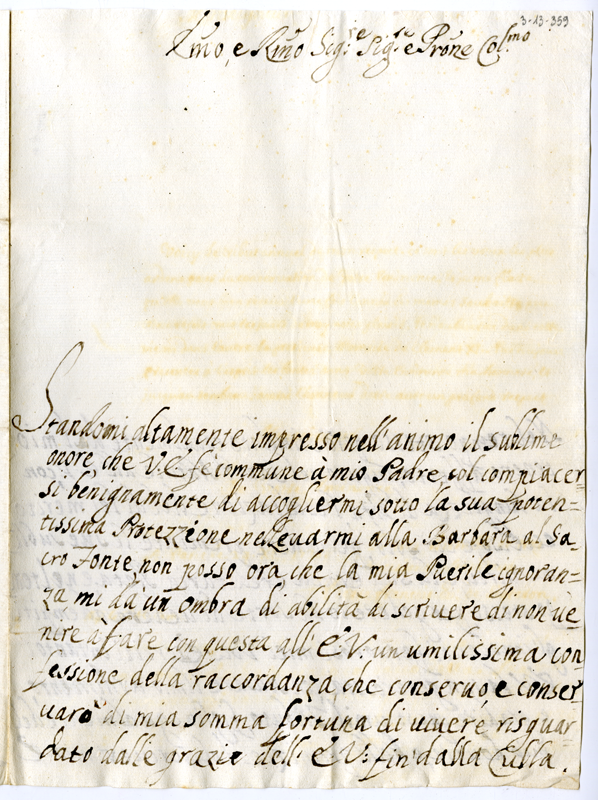 3-13-359
Emo, e Rmo Sig:re Sig:re e Prone Col:mo
Standomi altamente impresso nell'animo il sublime
onore, che V. E. fè commune à mio Padre, col compiacer=
si benignamente di accogliermi sotto la sua poten=
tissima Protezzione nel levarmi alla Barbara al Sa=
cro Fonte, non posso ora che la mia Puerile ignoran=
za mi dà un ombra di abilità di scrivere di non ve=
nire à fare con questa all' E. V: un umilissima con
fessione della raccordanza che conservo e conser=
varò di mia somma fortuna di vivere risguar=
dato dalle grazie dell' E V: fin dalla Culla.